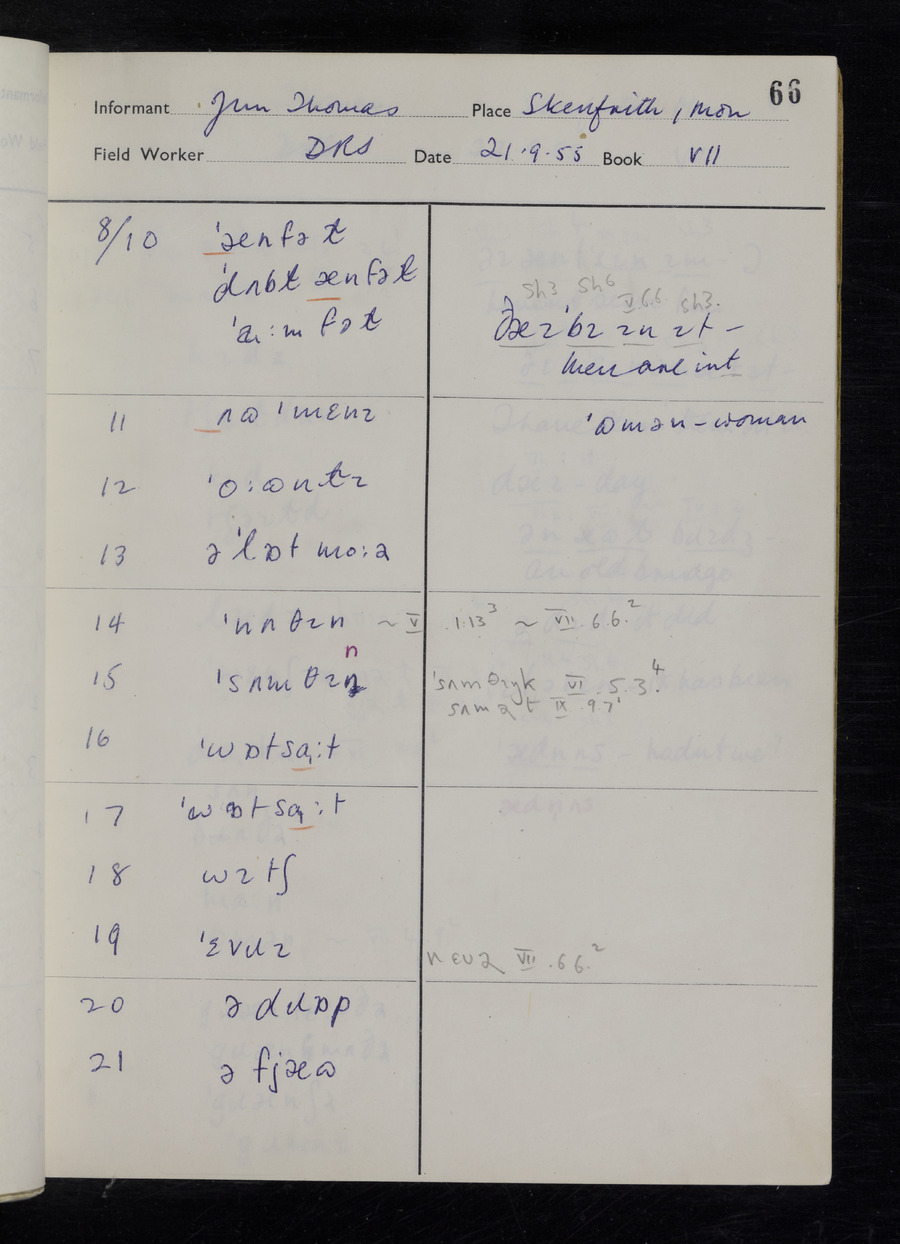 66
Informant Jim Thomas Place Skenfrith, Mon
Field Worker DRS Date 21.9.55 Book VII
8/10 ˈænfət
ˈdʌbt ænfət
ˈaːmfət
Sh3 Sh6 V.6.6 Sh3.
men are int
11 ʌɷˈmɛnɪ
ˈɷmən – woman
12 ˈoːɷntɪ
13 əˈlɒt moːə
14 ˈnʌθɪn ~ V 1.13³ ~ VII.6.6.²
n
15 ˈsʌmθɪn
ˈsʌmθɪŋk VI.5.3.⁴
sʌmət IX.9.7¹
16 ˈwɒtsaːt
17 ˈwɒtsaːt
18 wɪtʃ
19 ˈɛvɹɪ
nɛvə VII.6.6.²
20 ə dɹɒp
21 ə fjæɷ